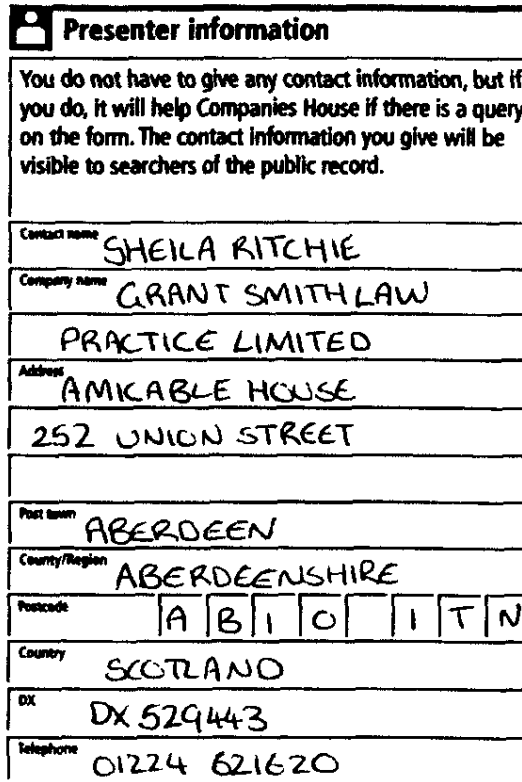 Presenter information
You do not have to give any contact information, but if
you do, it will help Companies House if there is a query
on the form. The contact information you give will be
visible to searchers of the public record.
Contact name SHEILA RITCHIE
Company name GRANT SMITH LAW
PRACTICE LIMITED
Address AMICABLE HOUSE
252 UNION STREET
Post town ABERDEEN
County/Region ABERDEENSHIRE
Postcode AB10 1TN
Country SCOTLAND
DX DX 529443
Telephone 01224 621620